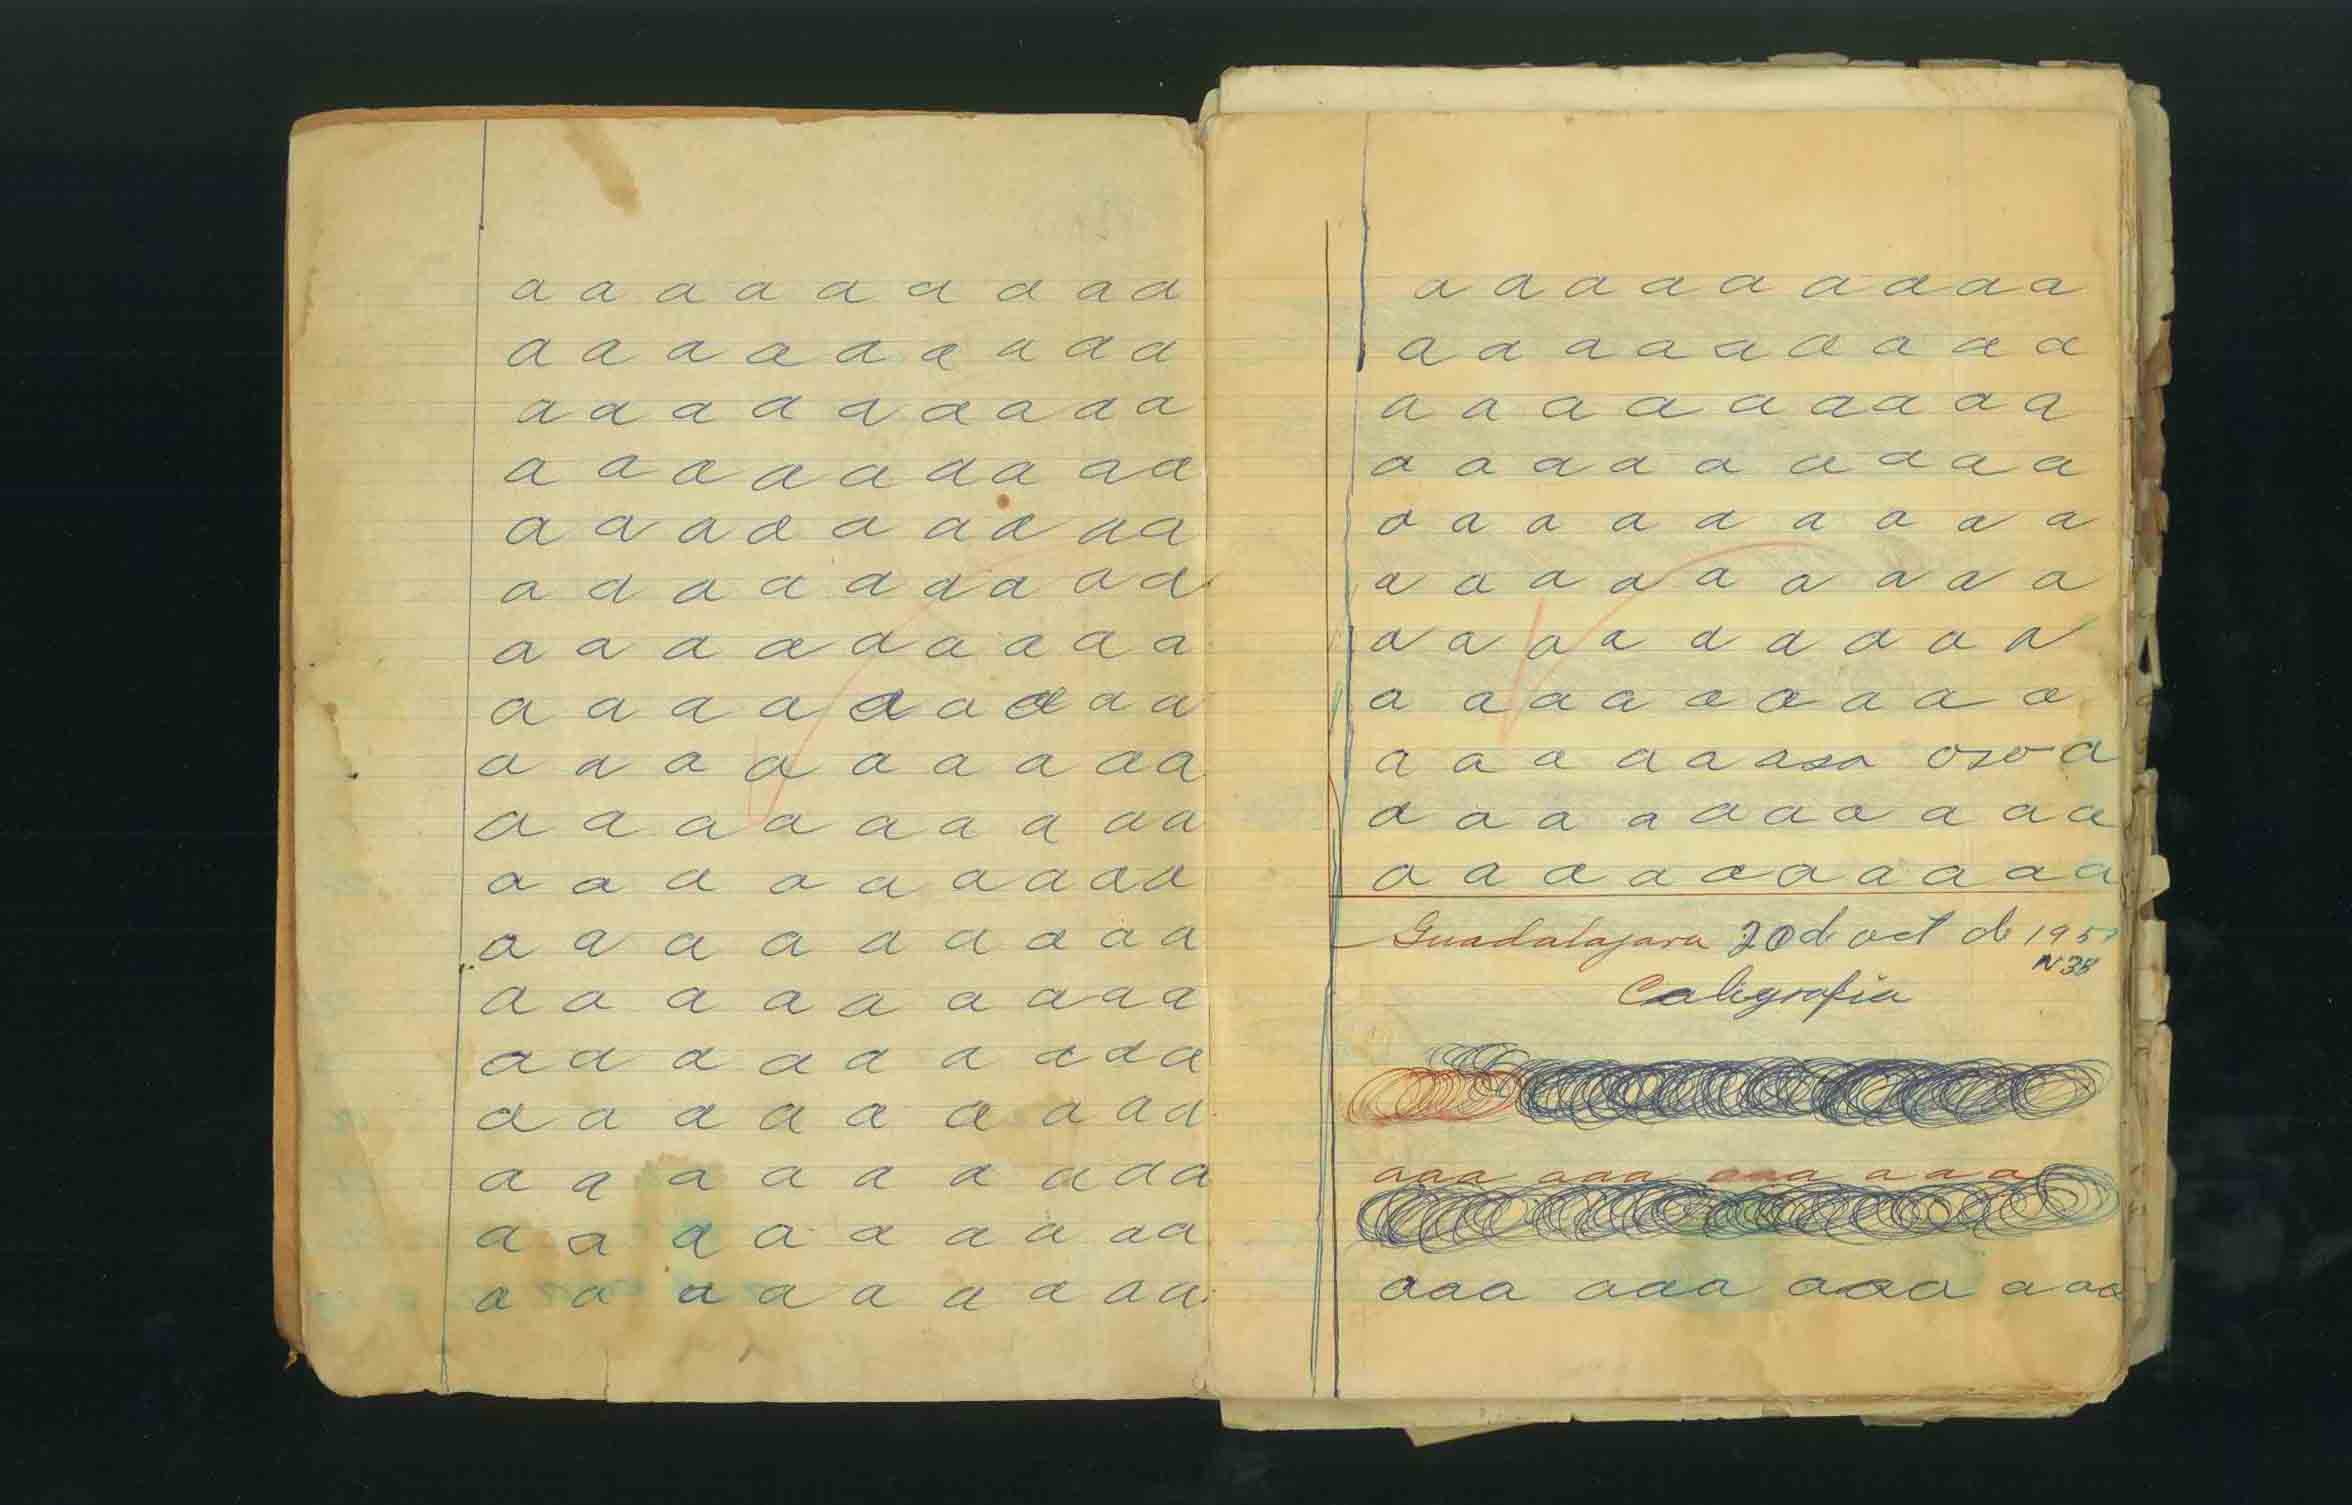 a a a a a a a a a
a a a a a a a a a
a a a a a a a a a
a a a a a a a a a
a a a a a a a a a
a a a a a a a a a
a a a a a a a a a
a a a a a a a a a
a a a a a a a a a
a a a a a a a a a
a a a a a a a a a
a a a a a a a a a
a a a a a a a a a
a a a a a a a a a
a a a a a a a a a
a a a a a a a a a
a a a a a a a a a
a a a a a a a a a
a a a a a a a a a
a a a a a a a a a
a a a a a a a a a
a a a a a a a a a
a a a a a a a a a
a a a a a a a a a
a a a a a a a a a
a a a a a a a a a
a a a a a a
a a a a a a a a a a
a a a a a a a a a a
Guadalajara 20 de oct de
N 38
Caligrafia
aaa aaa aaa a a a
aaa aaa aaa a aa